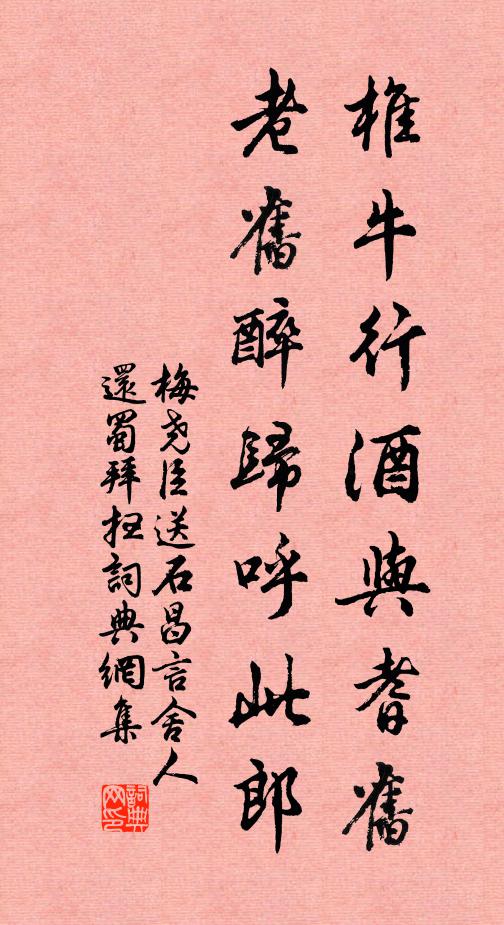 椎牛行酒與耆舊
老舊醉歸呼此郎
梅尧臣送石昌言舍人
還蜀拜掃詞典網集
詞典网印